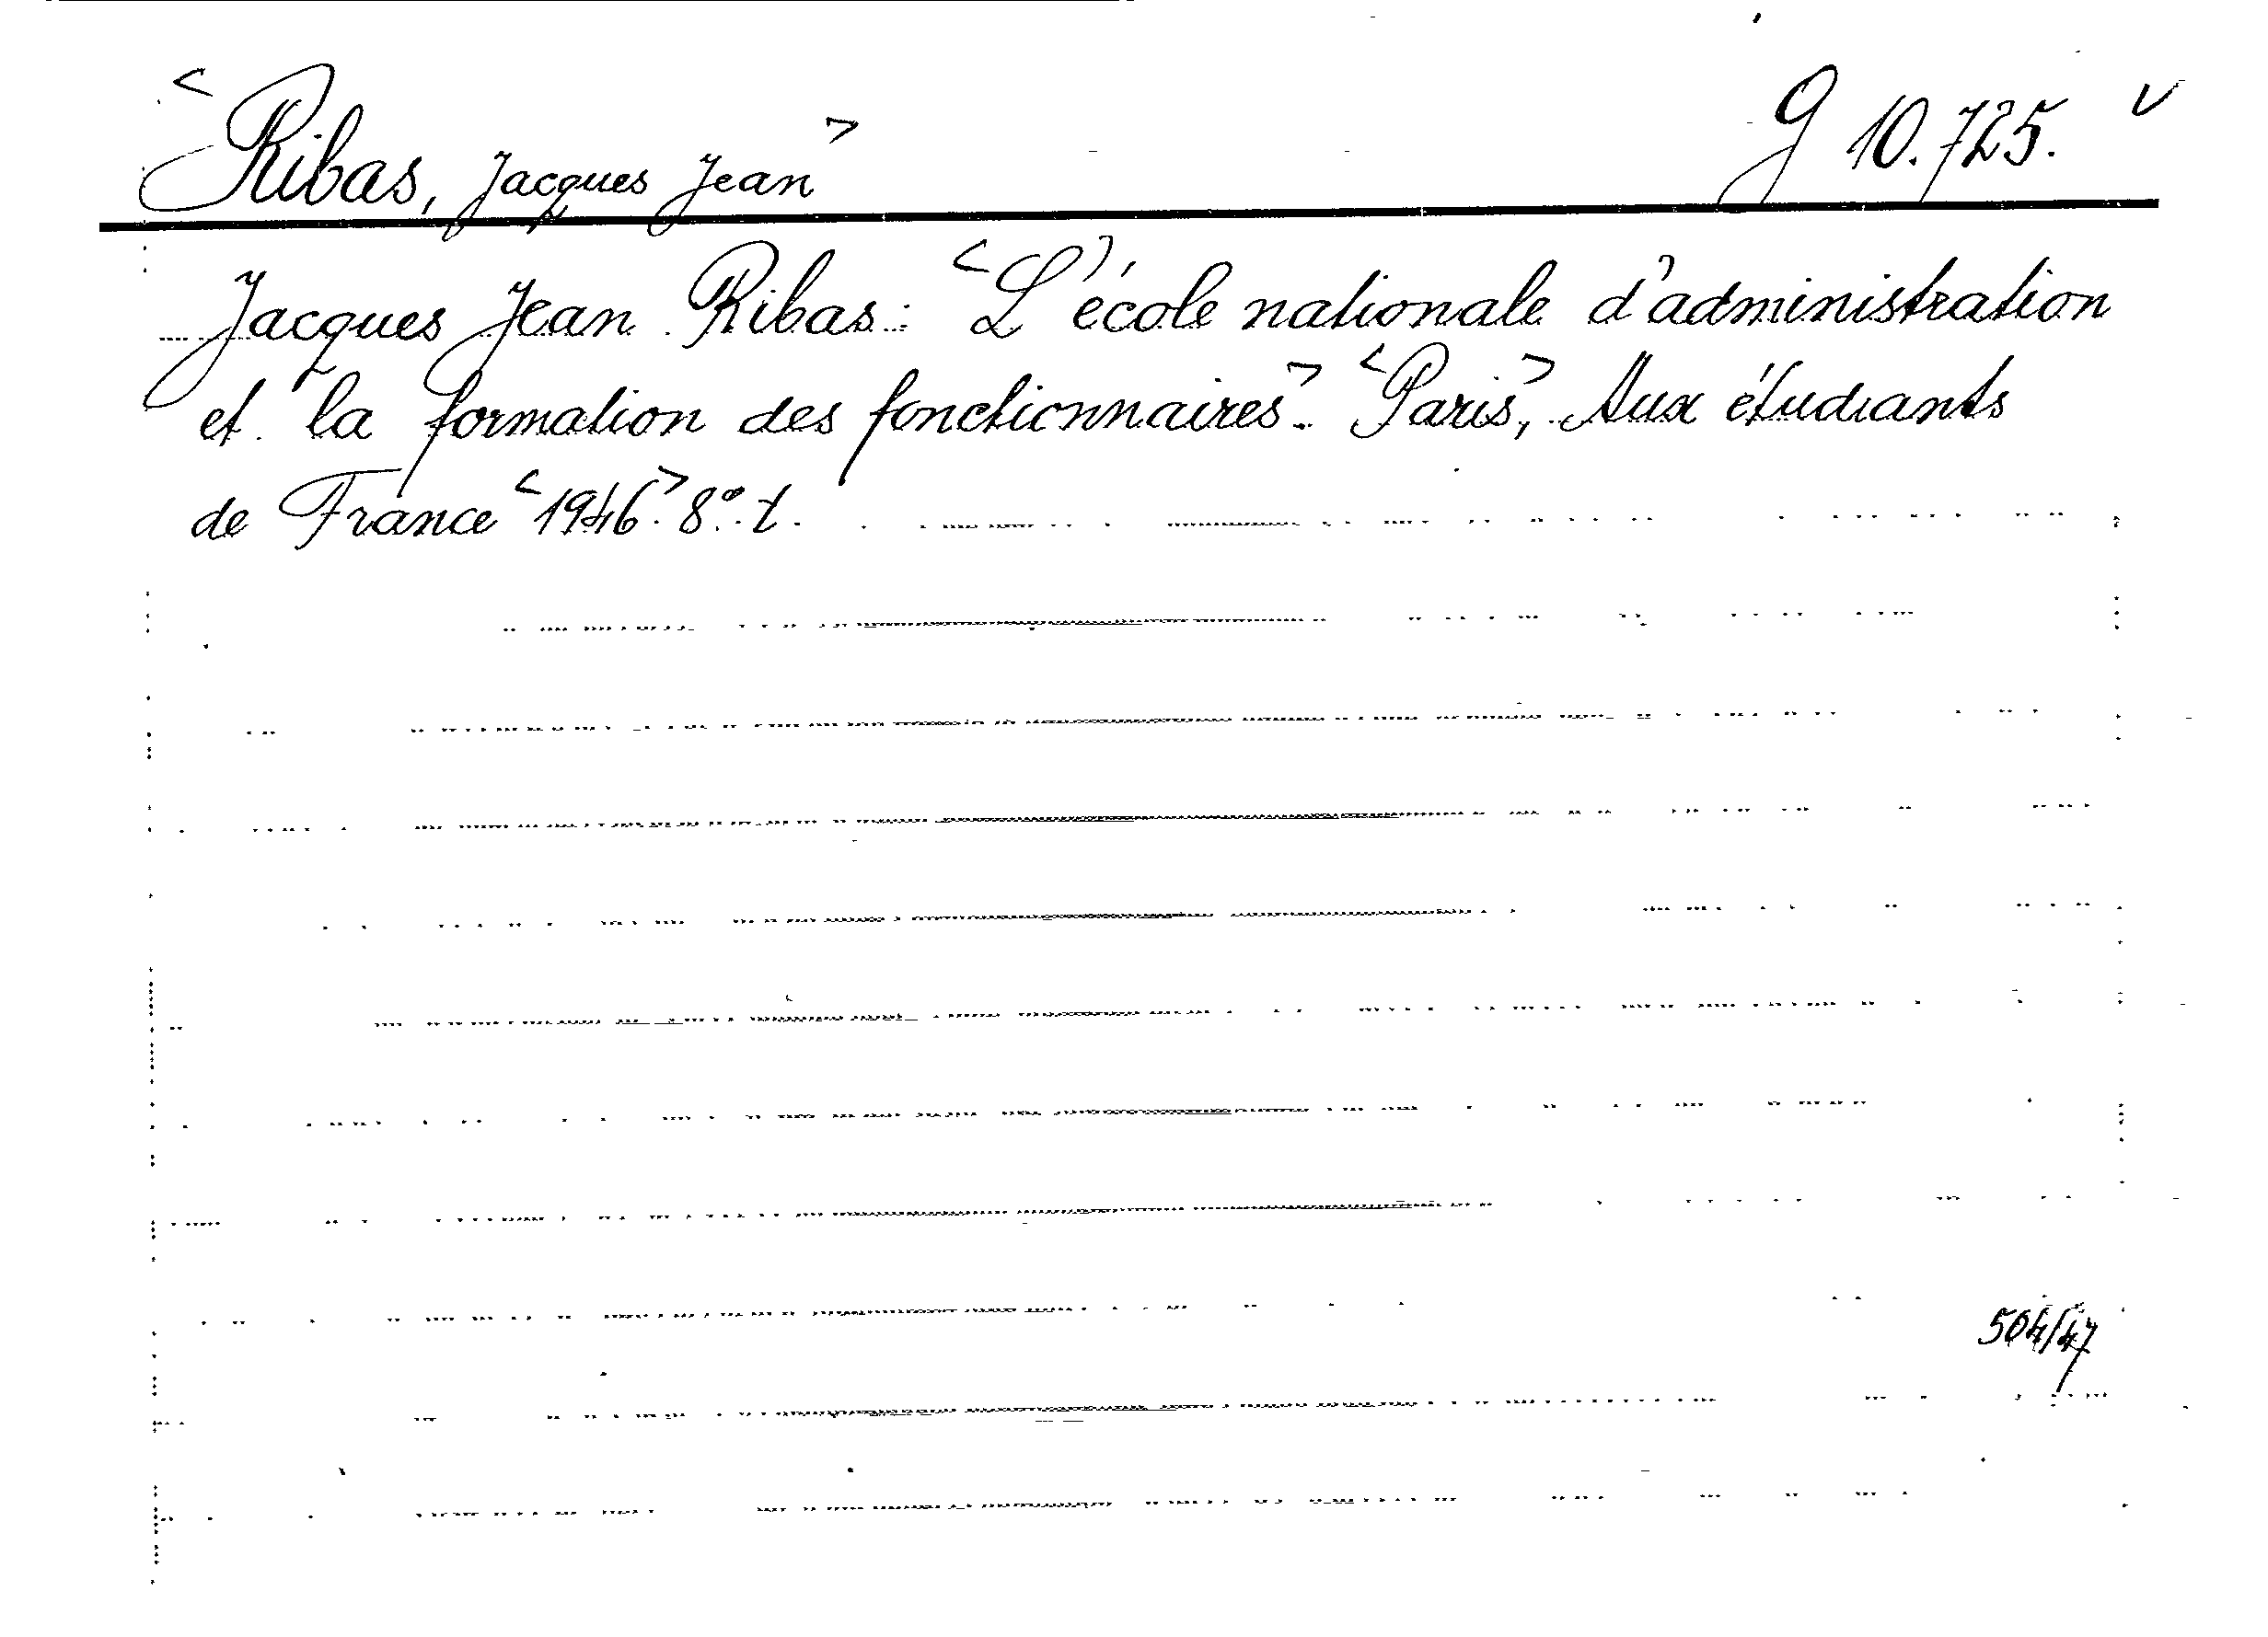 <Ribas, Jacques Jean> G 10.725. v
Jacques Jean Ribas: <L'école nationale d'administration
et la formation des fonctionnaires>. <Paris>, Aux étudiants
de France <1946>. 8°. t.
504/47